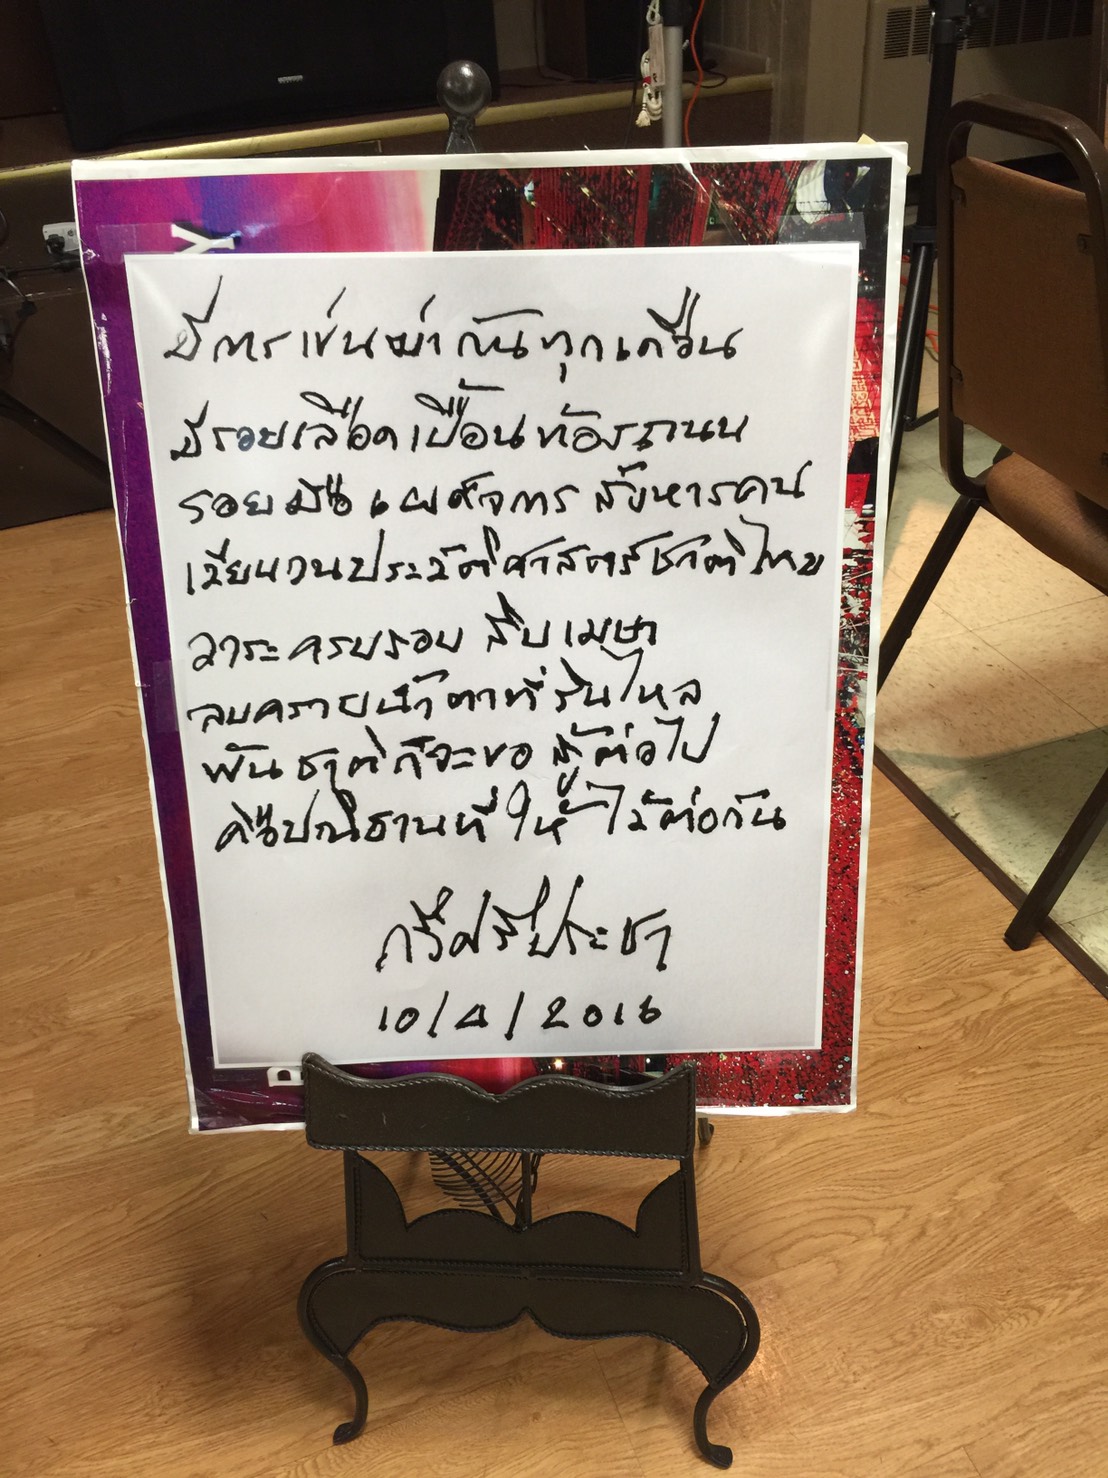 Y
มีการเข่นฆ่ากันทุกเดือน
มีรอยเลือดเปื้อนท้องถนน
รอยมือเผด็จการสังหารคน
เวียนวนประวัติศาสตร์ชาติไทย
วาระครบรอบสิบเมษา
ลบคราบน้ำตาที่รินไหล
พันธุ์ชาติก็จะขอสู้ต่อไป
คือปณิธานที่ให้ไว้ต่อกัน
กวีศรีประชา
10/4/2016
B